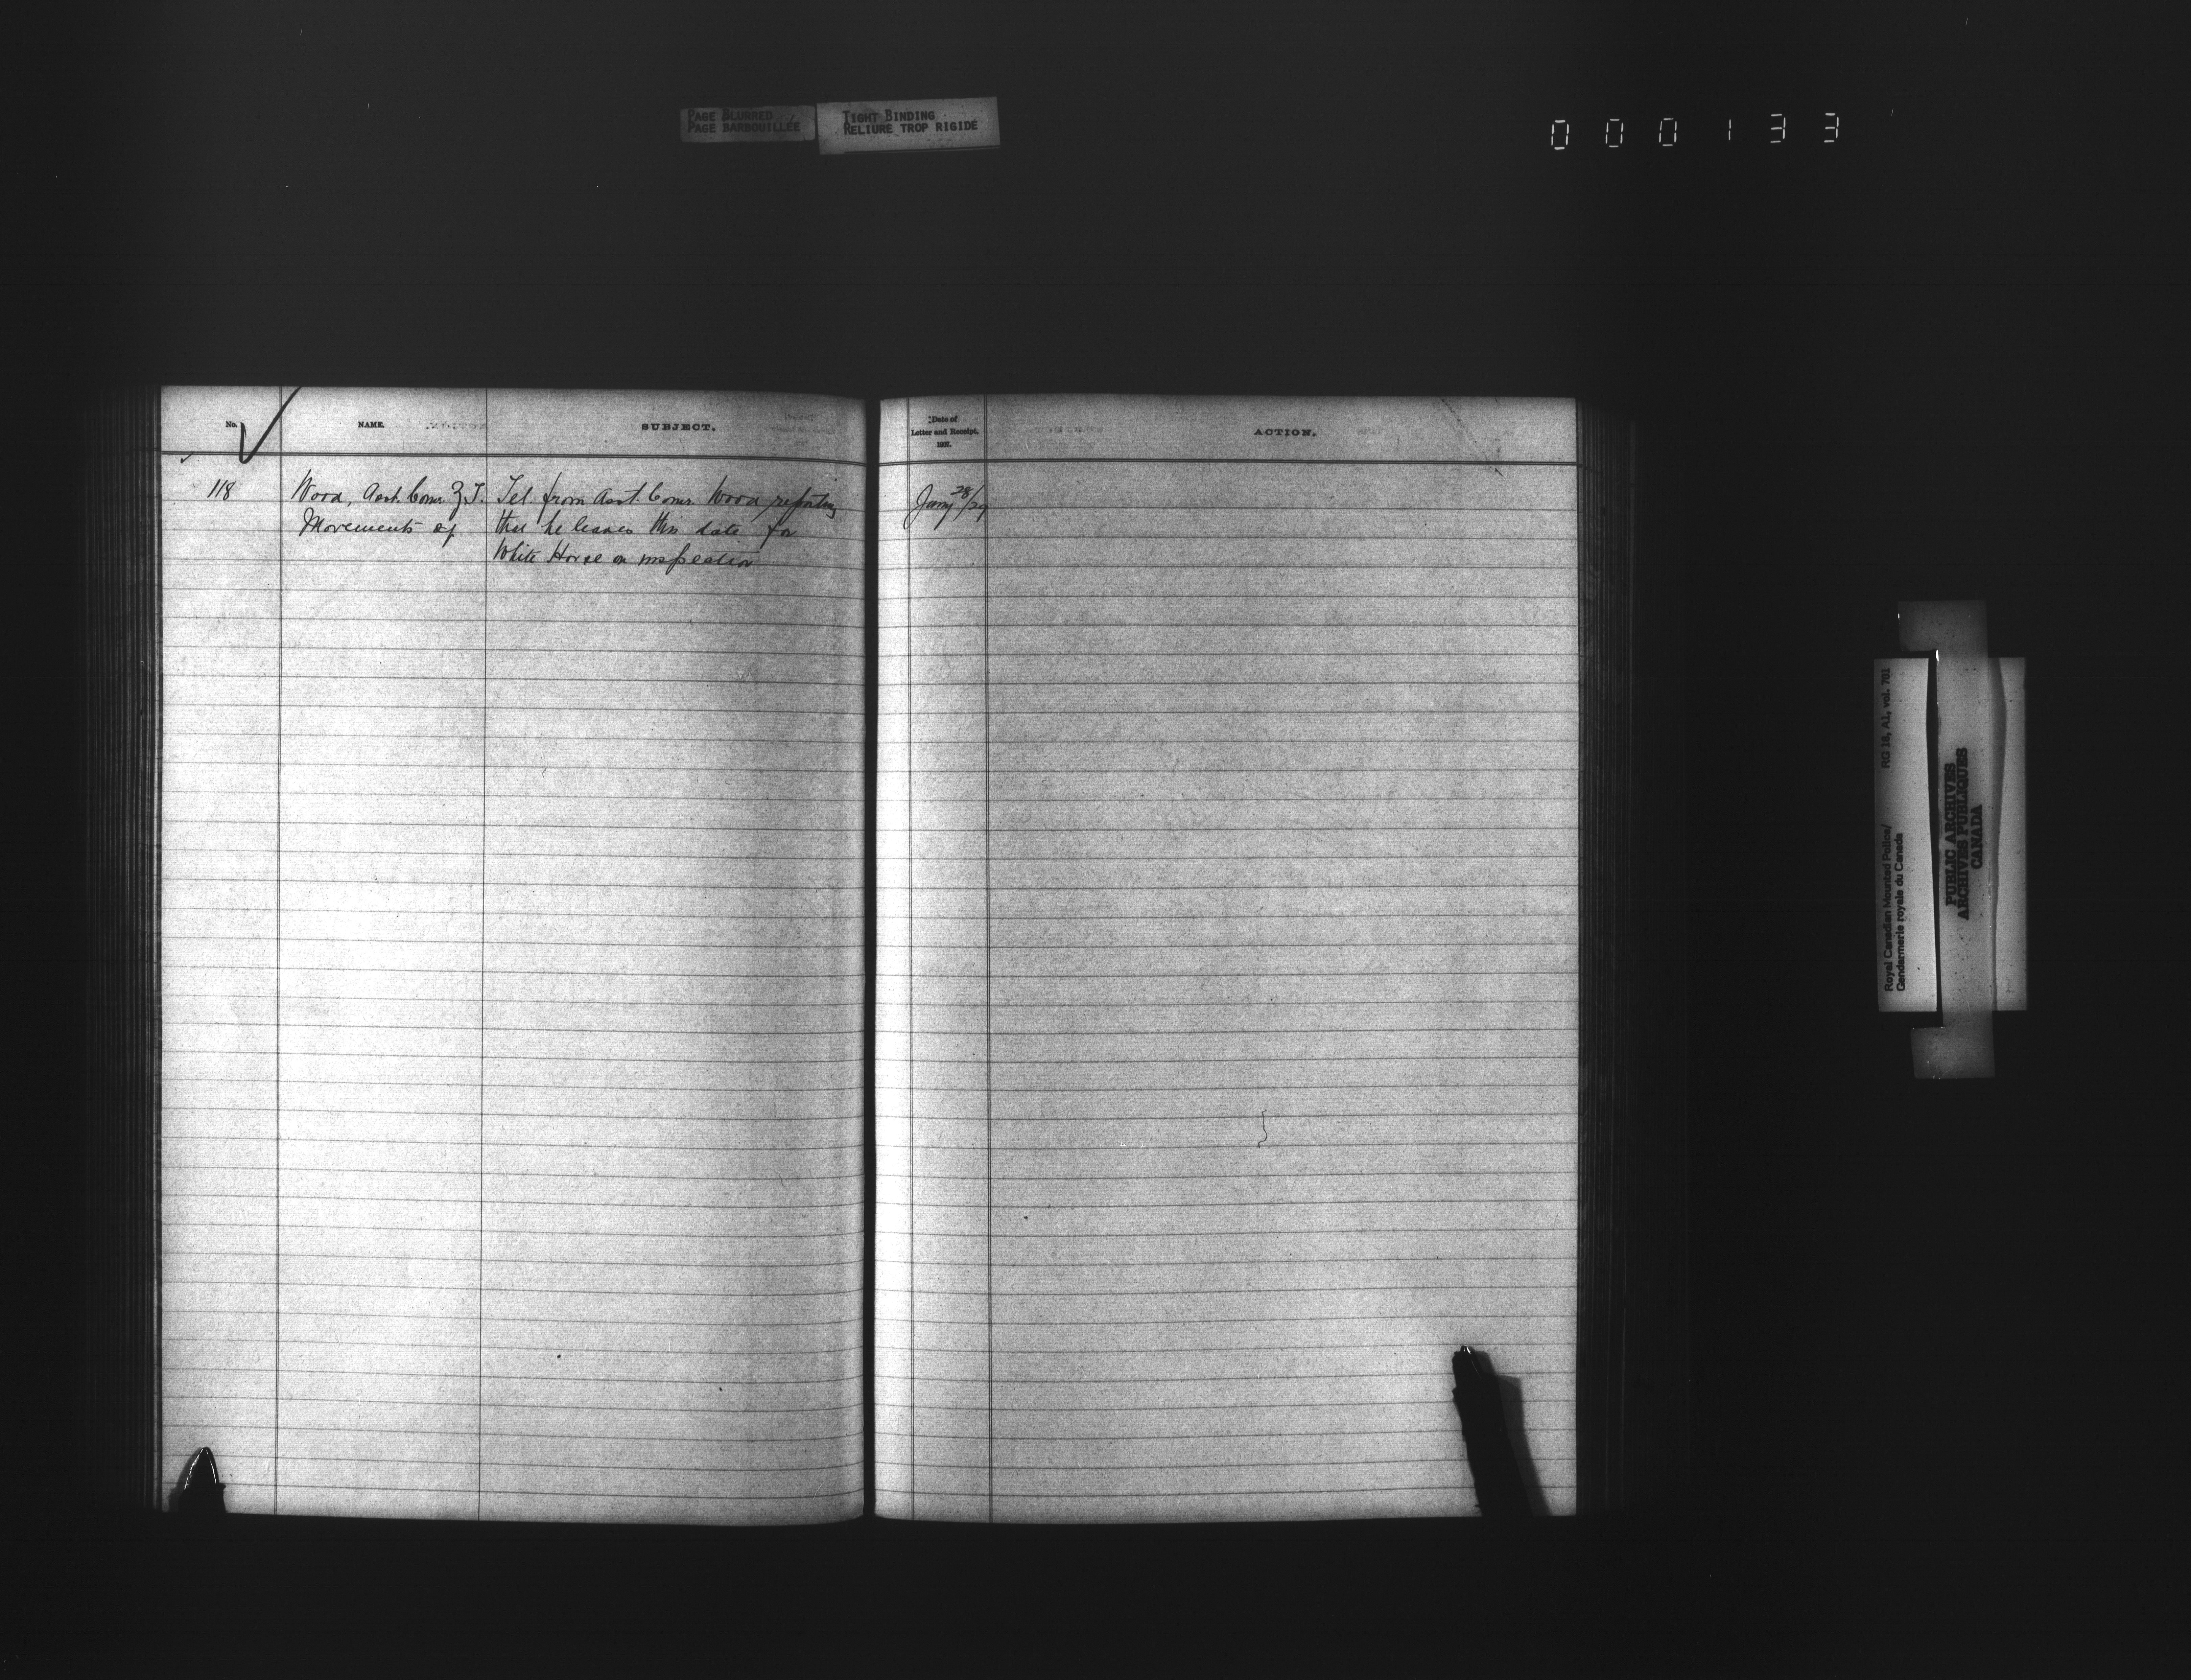 PAGE BLURRED
PAGE BARBOUILLÉE
TIGHT BINDING
RELIURE TROP RIGIDE
000133
No.
NAME.
SUBJECT.
Date of
Letter and Receipt.
1907.
ACTION.
118
Wood, Asst. Comr. Z.T.
Movements of
Tel. from Asst. Comr. Wood reporting
that he leaves this date for
White Horse on inspection
Jany 28/29
Royal Canadian Mounted Police/ RG 18, A1, vol. 701
Gendarmerie royale du Canada
PUBLIC ARCHIVES
ARCHIVES PUBLIQUES
CANADA